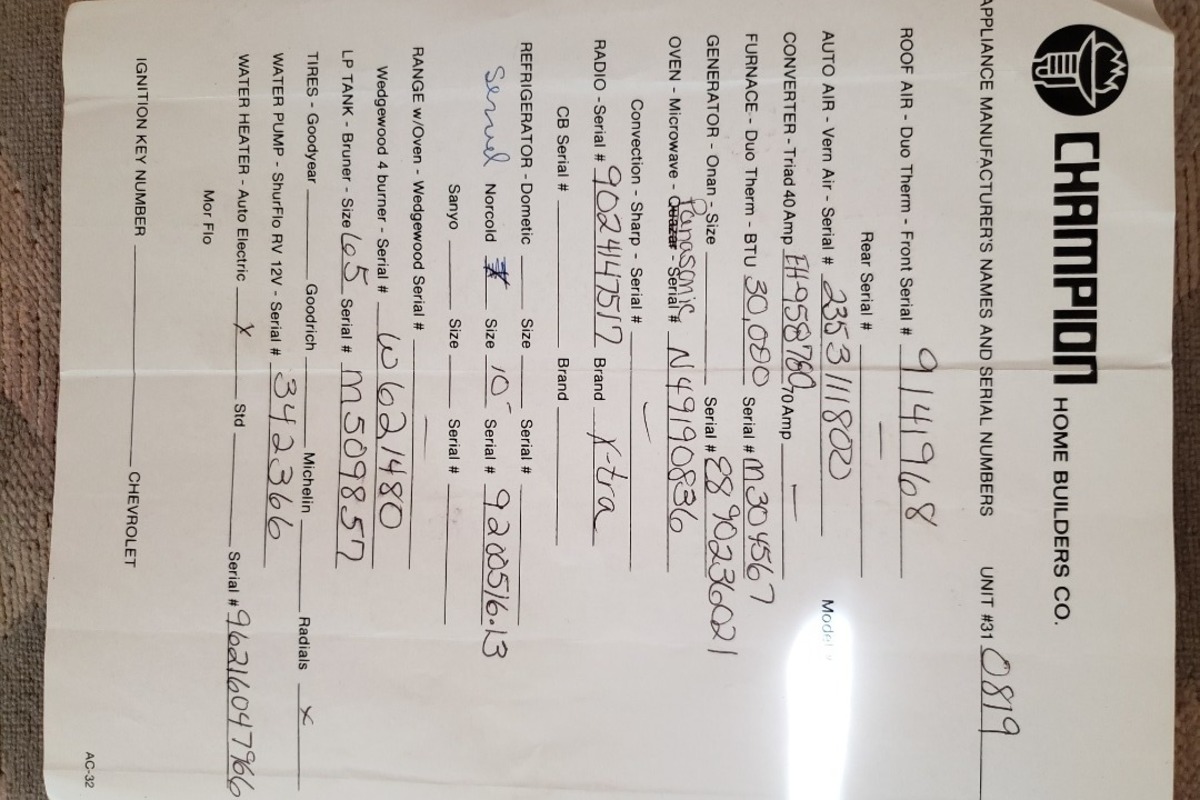 CHAMPION HOME BUILDERS CO.
APPLIANCE MANUFACTURER'S NAMES AND SERIAL NUMBERS UNIT #31 0819
ROOF AIR - Duo Therm - Front Serial # 9141968
Rear Serial # —
AUTO AIR - Vern Air - Serial # 2353111800 Model
CONVERTER - Triad 40 Amp EH958780 70 Amp —
FURNACE - Duo Therm - BTU 30,000 Serial # M304567
GENERATOR - Onan - Size Serial # 2889023602 1
OVEN - Microwave - Quazar - Panasonic Serial # N49190836
Convection - Sharp - Serial # —
RADIO - Serial # 9024147517 Brand X-tra
CB Serial # Brand
REFRIGERATOR - Dometic Size Serial #
Servel Norcold Size 10- Serial # 9200516.13
Sanyo Size Serial #
RANGE w/Oven - Wedgewood Serial # —
Wedgewood 4 burner - Serial # W621480
LP TANK - Bruner - Size 65 Serial # M509857
TIRES - Goodyear Goodrich Michelin Radials X
WATER PUMP - ShurFlo RV 12V - Serial # 342366
WATER HEATER - Auto Electric X Std Serial # 9621604 7966
Mor Flo
IGNITION KEY NUMBER CHEVROLET
AC-32